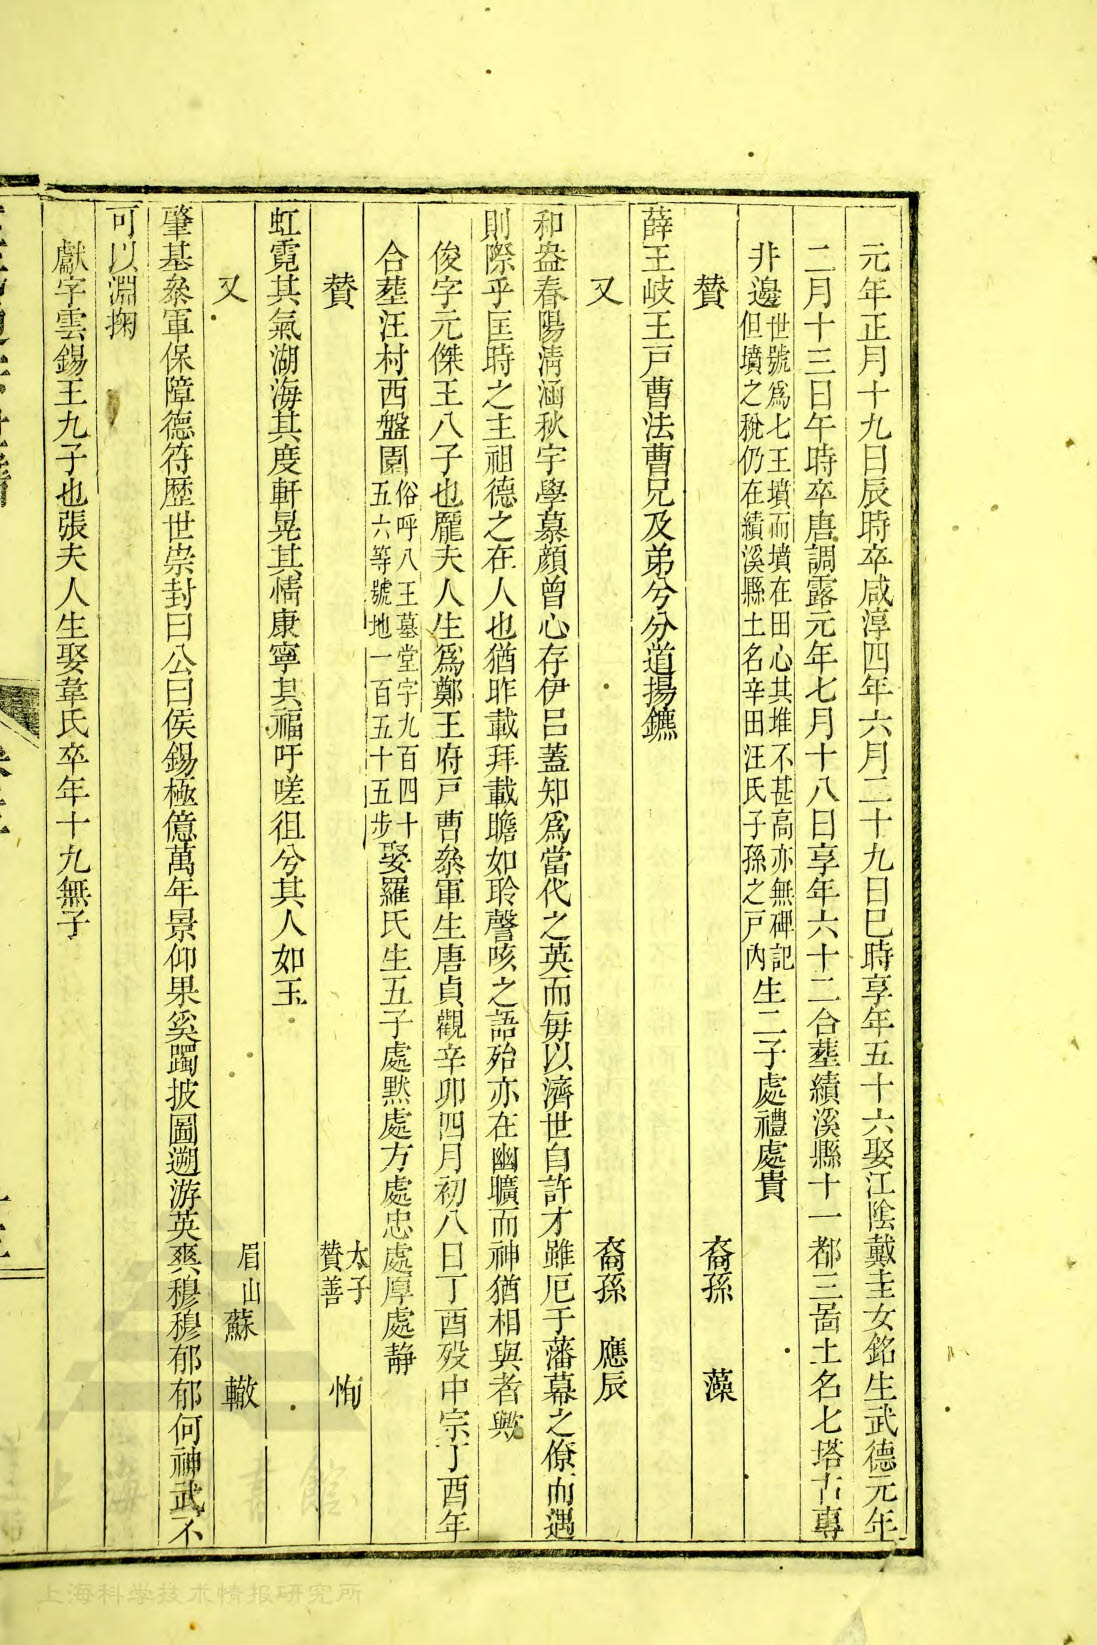 元年正月十九日辰時卒咸淳四年六月二十九日巳時享年五十六娶江陰戴圭女銘生武德元年
二月十三日午時卒唐調露元年七月十八日享年六十二合塟績溪縣十一都三啚土名七塔古專
非邉世號爲七王墳而墳在田心其堆不甚高亦無碑記
但墳之稅仍在績溪縣土名辛田汪氏子孫之戸內
生二子處禮處貴
贊 裔孫 藻
薛王岐王戸曹法曹兄及弟兮分道揚鑣
又 裔孫 應辰
和盎春陽淸涵秋宇學慕顔曾心存伊呂蓋知爲當代之英而每以濟世自許才雖厄于藩幕之僚而遇
則際乎匡時之主祖德之在人也猶昨載拜載瞻如聆謦咳之語殆亦在幽曠而神猶相與者歟
俊字元傑王八子也龎夫人生爲鄭王府戸曹叅軍生唐貞觀辛卯四月初八日丁酉殁中宗丁酉年
合塟汪村西盤園
俗呼八王墓堂字九百四十
五六等號地一百五十五步
娶羅氏生五子處黙處方處忠處厚處静
贊 太子
贊善 恂
虹霓其氣湖海其度軒晃其情康寧其福吁嗟徂兮其人如玉
又 眉山蘇 轍
肇基叅軍保障德符歷世崇封曰公曰侯錫極億萬年景仰果奚躅披圖遡游英爽穆穆郁郁何神武不
可以淵掬
獻字雲錫王九子也張夫人生娶韋氏卒年十九無子
上海科学技术情报研究所